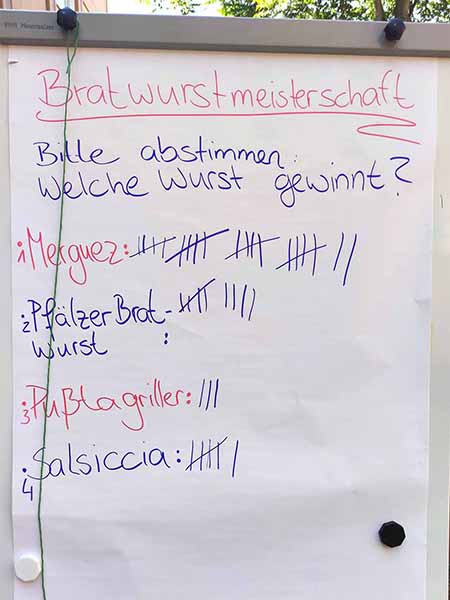 Bratwurstmeisterschaft
Bitte abstimmen:
Welche Wurst gewinnt?
1 Merguez:
2 Pfälzer Brat-
wurst :
3 Pußtagriller:
4 Salsiccia: